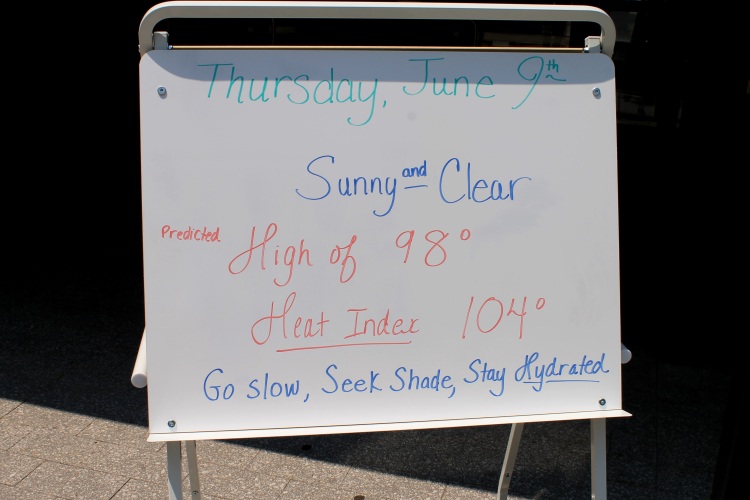 Thursday, June 9th
Sunny and Clear
Predicted High of 98°
Heat Index 104°
Go slow, Seek Shade, Stay Hydrated